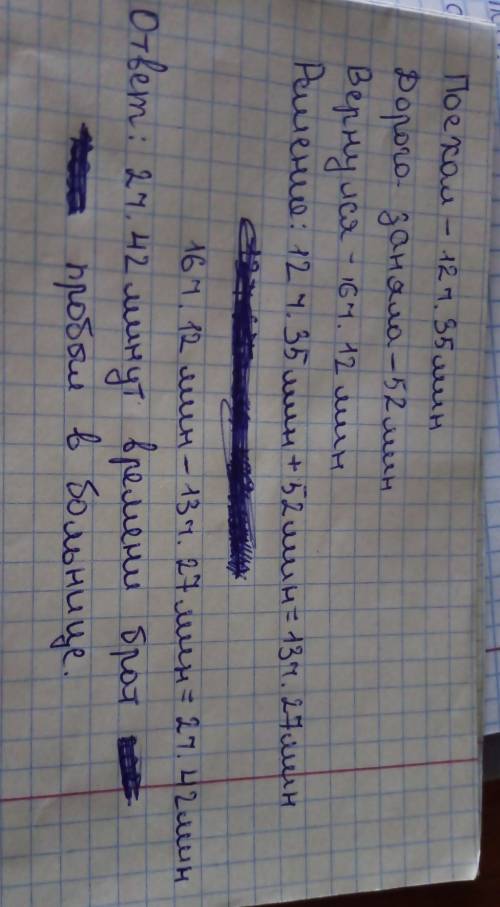 Поехал - 12ч. 35мин
Дорога заняла - 52мин
Вернулся - 16ч. 12мин
Решение: 12ч. 35мин + 52мин = 13ч. 27мин
16ч. 12мин - 13ч. 27мин = 2ч. 42мин
Ответ: 2ч. 42минут времени брат
пробыл в больнице.